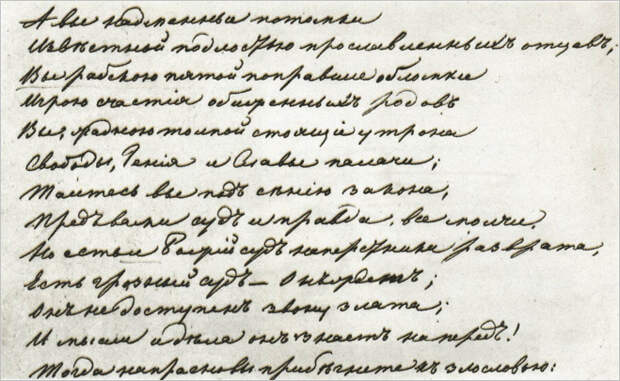 А вы надменные потомки
Извѣстной подлостью прославленныхъ отцевъ;
Вы рабскою пятой поправшие обломки
Игрою счастія обиженныхъ родовъ
Вы, жадною толпой стоящіе у трона
Свободы, Генія и Славы палачи;
Таитесь вы подъ сѣнію закона,
Предъ вами судъ и правда, все молчи.
Но есть и Божій судъ наперсники разврата,
Есть грозный судъ — Онъ ждетъ;
Онъ не доступенъ звону злата;
И мысли и дѣла онъ знаетъ напередъ!
Тогда напрасно вы прибѣгнете къ злословью: